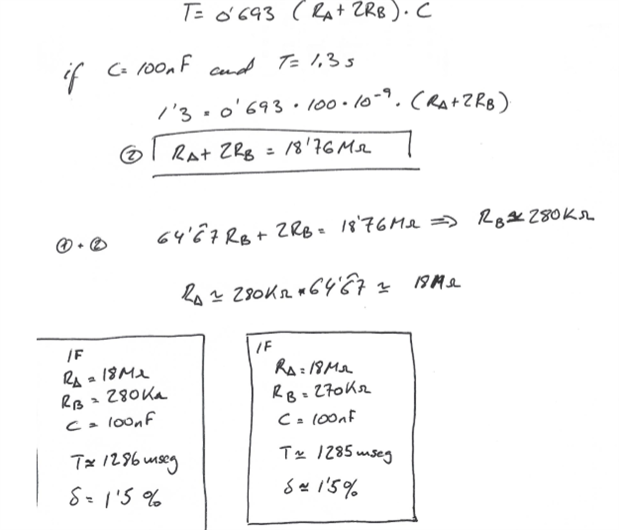 T= 0'693 (RA+2RB)·C
if C=100nF and T=1,3s
1'3 = 0'693·100·10⁻⁹·(RA+2RB)
② RA+2RB = 18'76MΩ
①+② 64'6̂7RB+2RB = 18'76MΩ ⇒ RB≃280KΩ
RA ≃ 280KΩ*64'6̂7 ≃ 18MΩ
IF
RA=18MΩ
RB=280KΩ
C=100nF
T≃1296mseg
δ=1'5%
IF
RA=18MΩ
RB=270KΩ
C=100nF
T≃1285mseg
δ≃1'5%